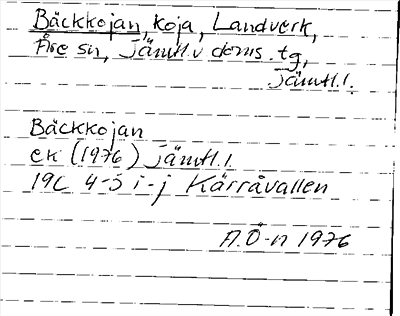 Bäckkojan, koja, Landverk,
Åre sn, Jämtl. v doms. tg,
Jämtl.l.
Bäckkojan
ek (1976) Jämtl.l.
19C 4-5 i-j Kärråvallen
A.Ö-n 1976